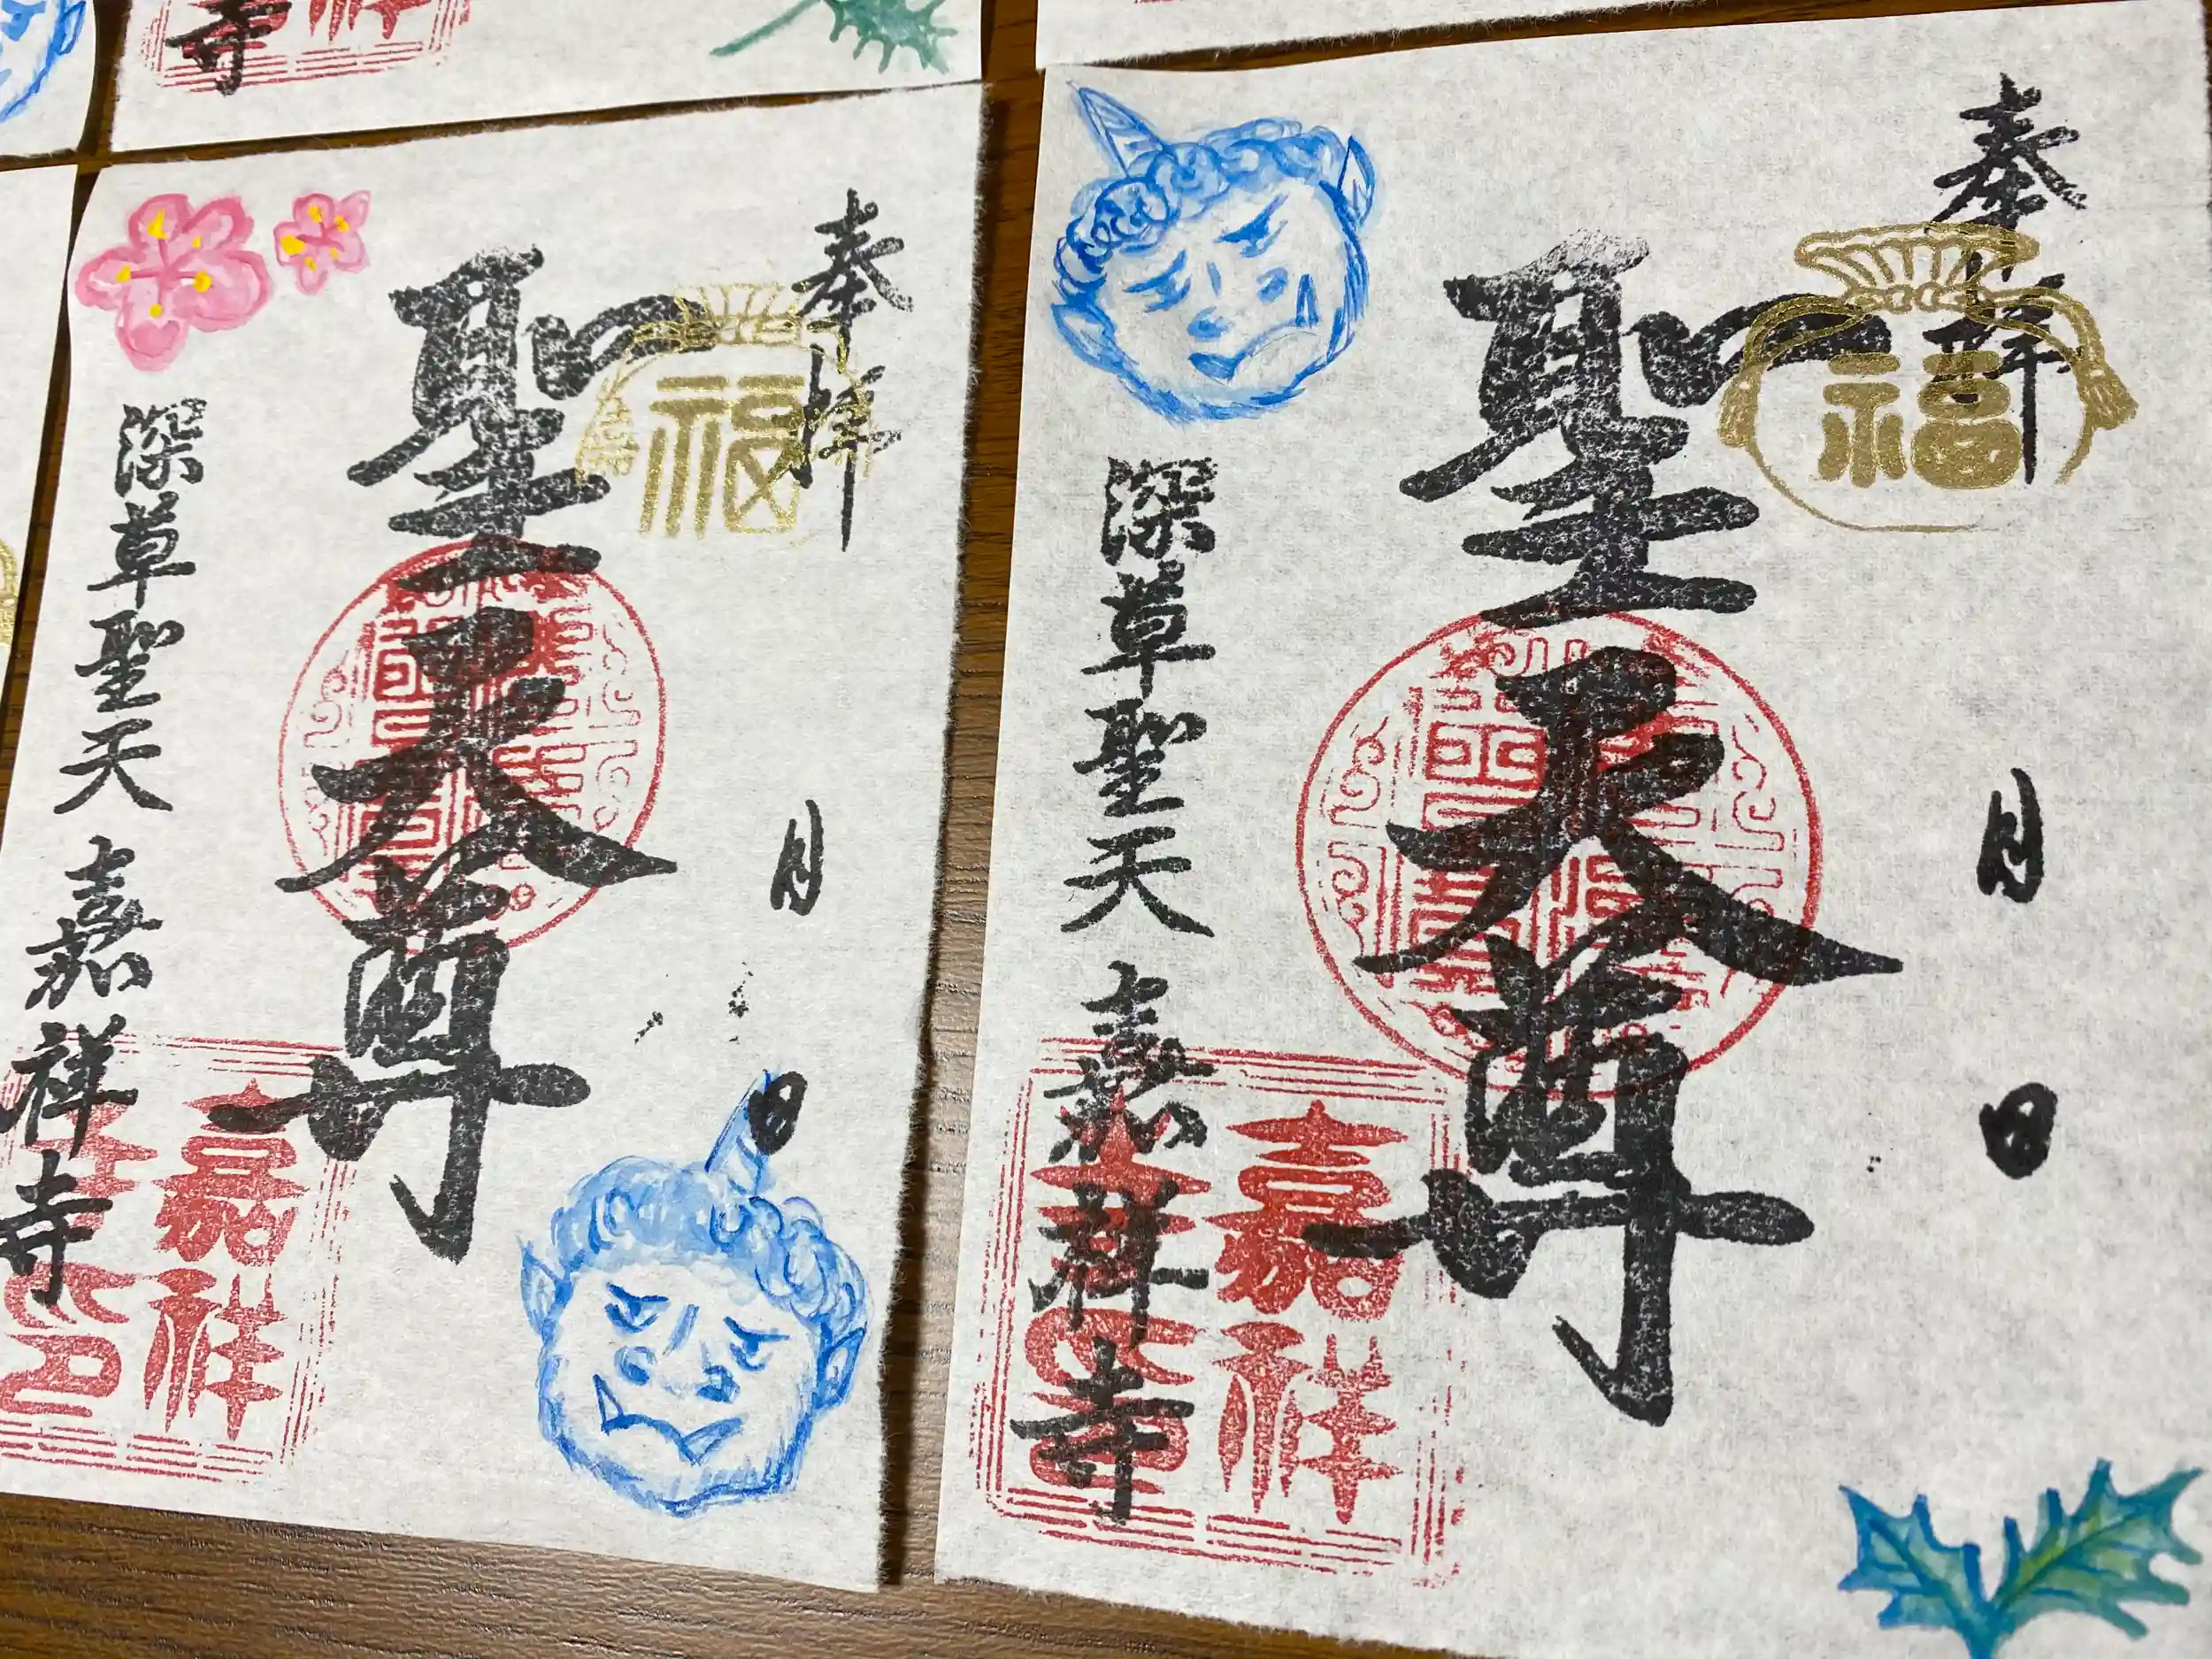 寺
奉拝
福
月
日
聖天尊
深草聖天 嘉祥寺
嘉祥
奉拝
福
月
日
聖天尊
深草聖天 嘉祥寺
嘉祥